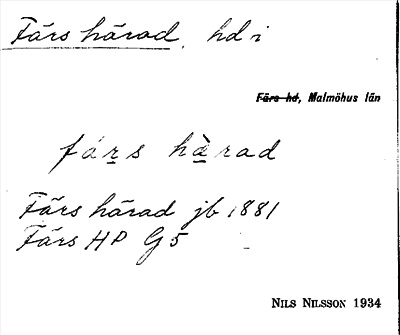 Färs härad, hd i
Färs hd, Malmöhus län
fárs hàrad
Färs härad jb 1881
Färs HP G5
NILS NILSSON 1934